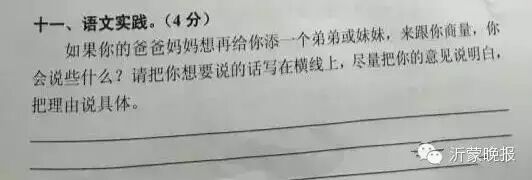 十一、语文实践。(4分)
如果你的爸爸妈妈想再给你添一个弟弟或妹妹，来跟你商量，你
会说些什么？请把你想要说的话写在横线上，尽量把你的意见说明白，
把理由说具体。
沂蒙晚报